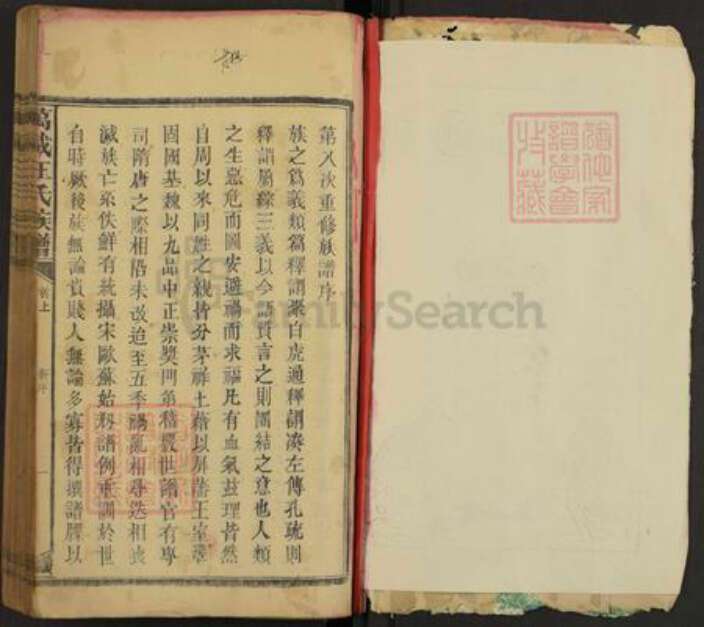 第八次重修族譜序
族之爲義類篇釋謂聚白虎通釋謂湊左傳孔疏則
釋謂屬綜三義以今語質言之則團結之意也人類
之生惡危而圖安避禍而求福凡有血氣玆理皆然
自周以來同姓之親皆分茅胙土藉以屏藩王室
固國基魏以九品中正崇獎門第稽譜世譜官有專
司隋唐之際相循未改迨至五季禍亂相尋迭相喪
滅族亡系佚鮮有統攝宋歐蘇始刱譜例重調於世
自時厥後族無論貴賤人無論多寡皆得撰譜牒以
萬載王氏族譜
卷上
新序
一
譜學會
收藏
FamilySearch